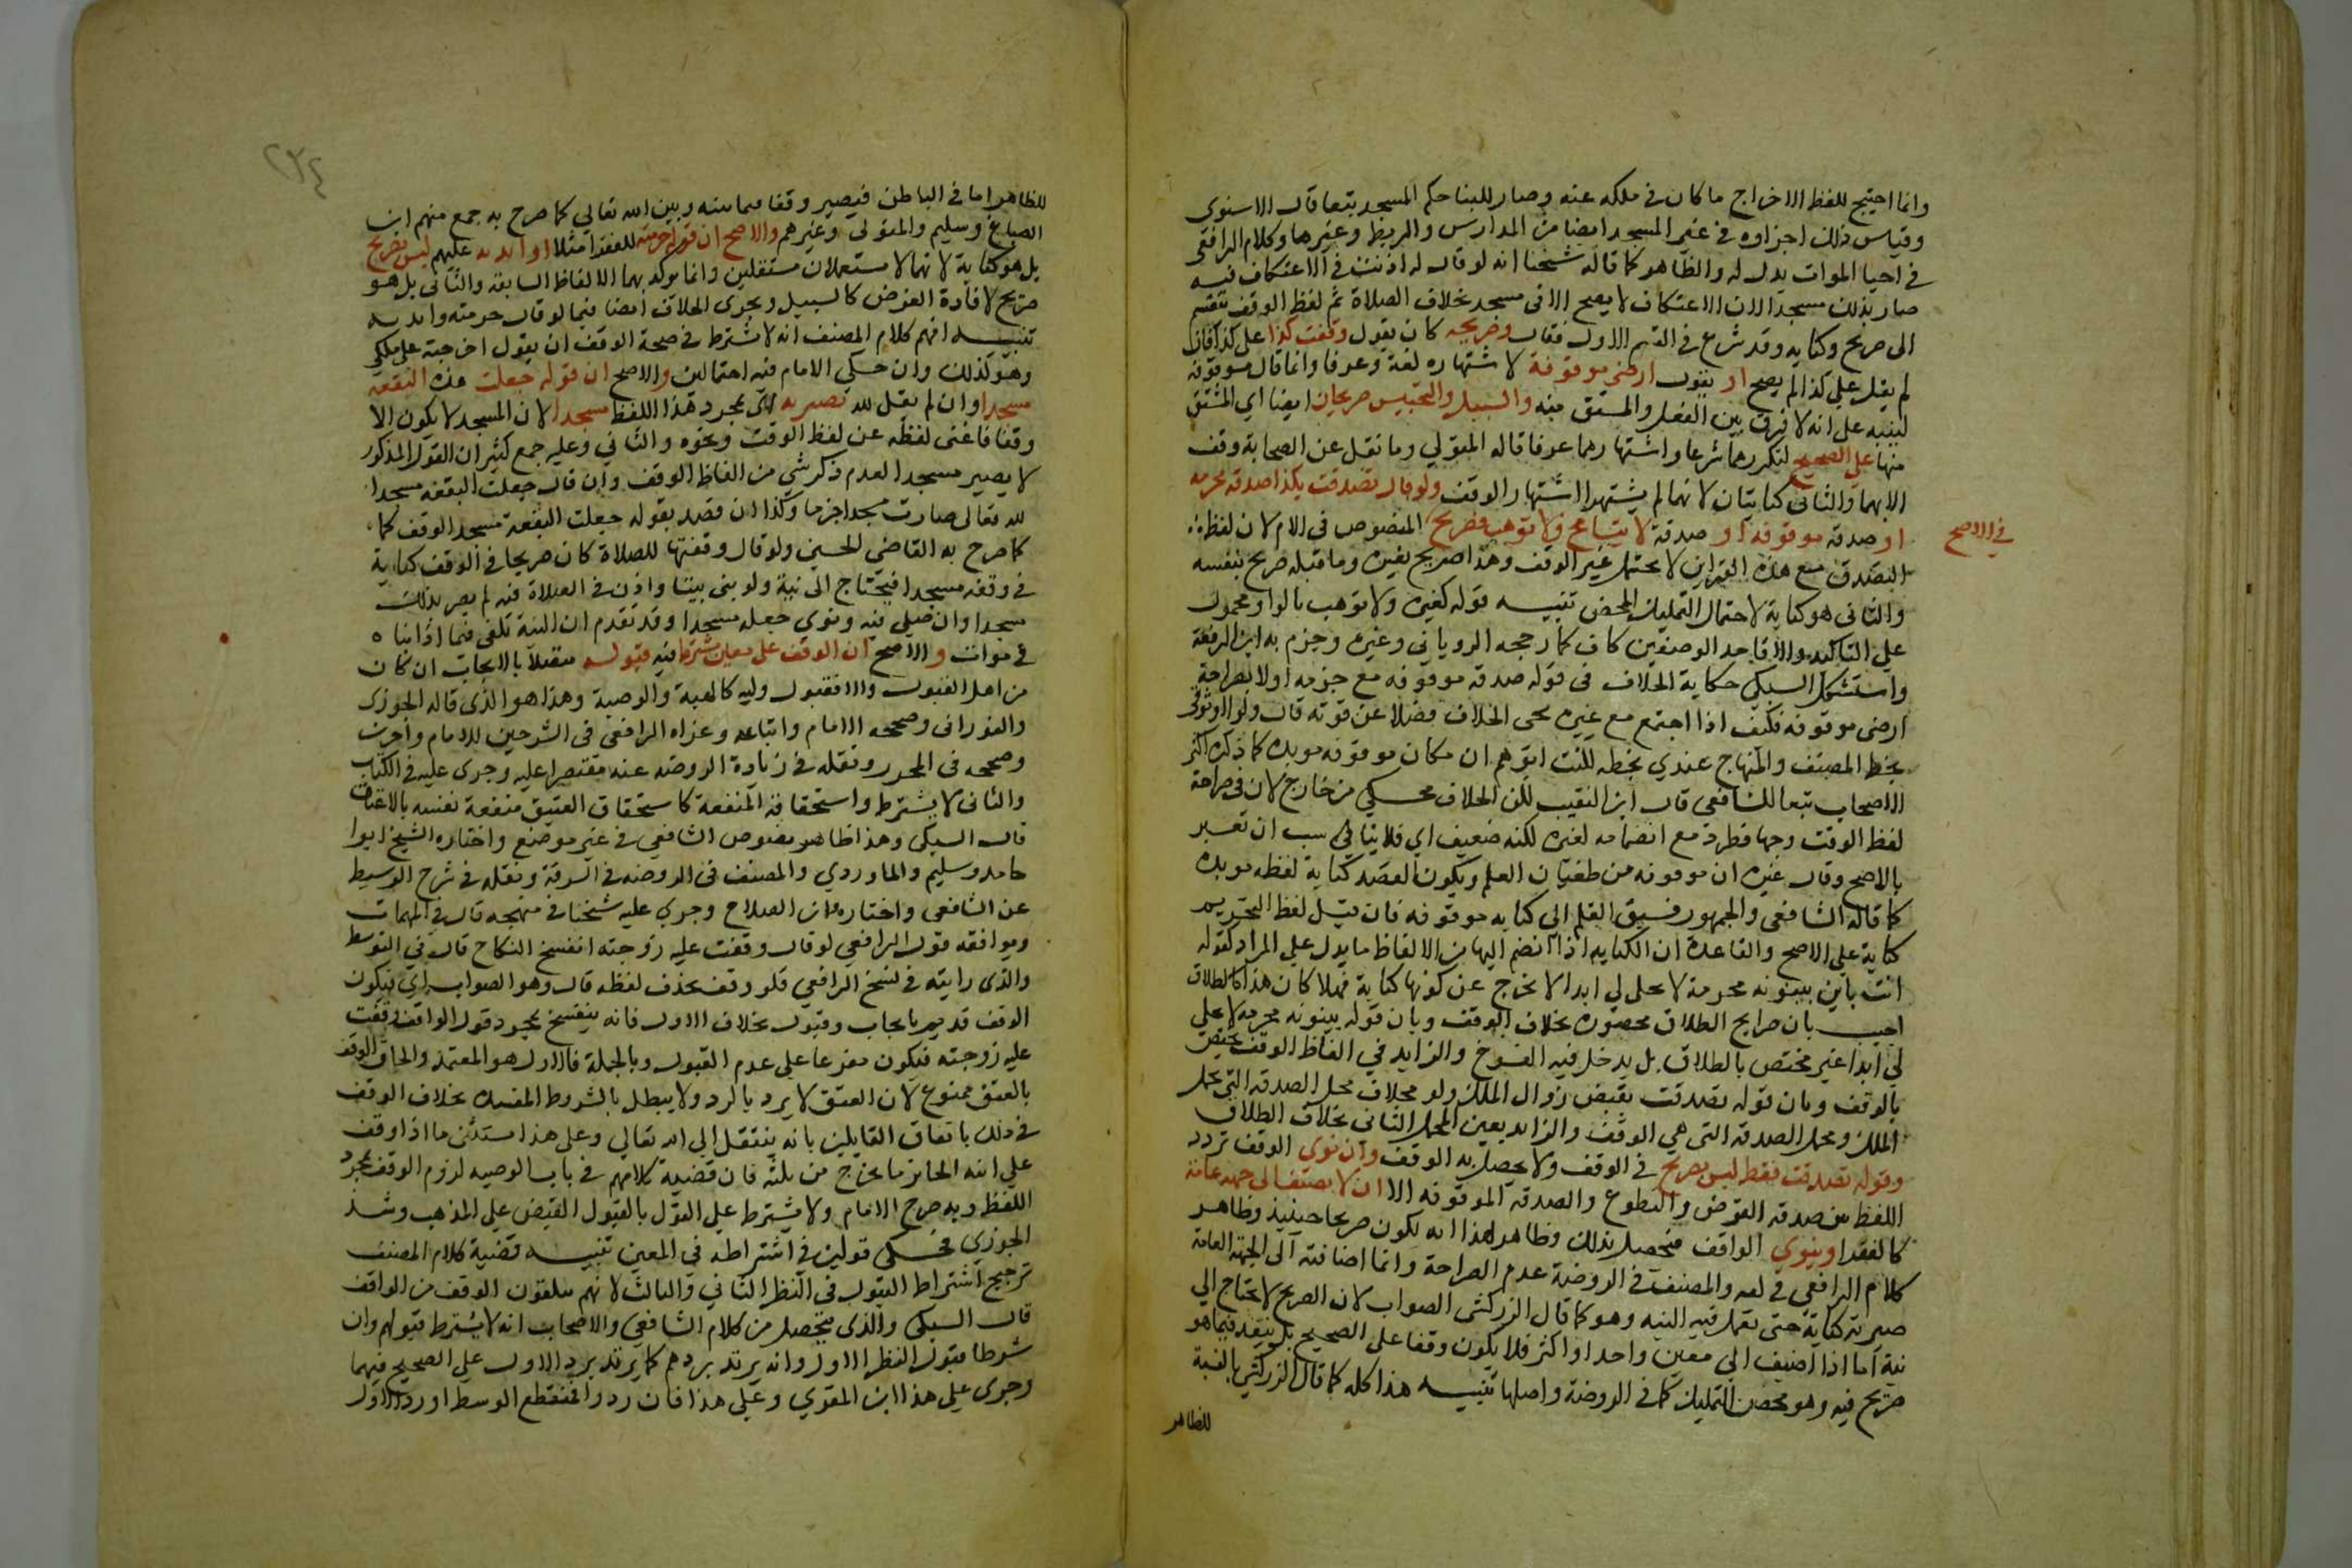 وانما احتيج للفظ الاخراج ما كان في ملكه عنه وصار للبنا حكم المسجد تبعا قال الاسنوى
وقياس ذلك اجزاوه في غير المسجد ايضا من المدارس والربط وغيرها وكلام الرافعى
في احيا الموات يدل له والظاهر كما قاله شيخنا انه لو قال له اذنت في الاعتكاف فيه
صار بذلك مسجدا لان الاعتكاف لا يصح الا فى مسجد بخلاف الصلاة ثم لفظ الوقف ينقسم
الى صريح وكنايه وقد شرع في القسم الاول فقال وصريحه كان يقول وقفت كذا على كذا فان
لم يقل على كذا لم يصح او يقول ارضى موقوفة لاشتهاره لغة وعرفا وانما قال موقوفة
لينبه على انه لا فرق بين الفعل والمشتق منه والتسبيل والتحبيس صريحان ايضا اي المشتق
منها على الصحيح لتكررهما شرعا واشتهارهما عرفا قاله المتولي وما نقل عن الصحابة وقف
الا بهما والثانى كنايتان لانهما لم يشتهرا اشتهار الوقف ولو قال تصدقت بكذا صدقه محرمه
او صدقه موقوفه او صدقة لا تباع ولا توهب فصريح المنصوص فى الام لان لفظ
في الاصح
التصدق مع هذه القراين لا يحتمل غير الوقف وهذا صريح بغيره وما قبله صريح بنفسه
والثانى هو كناية لاحتمال التمليك المحض تنبيه قوله كغيره ولا توهب بالواو محمول
على التاكيد والا فاحد الوصفين كاف كما رجحه الرويانى وغيره وجزم به ابن الرفعة
واستشكل السبكى حكاية الخلاف فى قوله صدقه موقوفه مع جزمه اولا بصراحة
ارضى موقوفه فكيف اذا اجتمع مع غيره يجى الخلاف فضلا عن قوته قال ولولا وثوقى
بخط المصنف والمنهاج عندي بخطه لكنت اتوهم ان مكان موقوفه موبده كما ذكره اكثر
الاصحاب تبعا للشافعى قال ابن النقيب لكن الخلاف محكي من خارج لان فى صراحة
لفظ الوقف وجها فطرد مع انضمامه لغيره لكنه ضعيف اي فلا يناسب ان يعبر
بالاصح وقال غيره ان موقوفه من طغيان القلم ويكون القصد كناية لفظه موبده
كما قاله الشافعى والجمهور فسبق القلم الى كتابه موقوفه فان قيل لفظ التحريم
كناية على الاصح والقاعدة ان الكنايه اذا انضم اليها من الالفاظ ما يدل على المراد كقوله
انت باين بينونه محرمة لا تحلى لى ابدا لا تخرج عن كونها كناية فهلا كان هذا كالطلاق
اجيب بان صرايح الطلاق محصوره بخلاف الوقف وبان قوله بينونه محرمه لا تحلى
لى ابدا غير مختص بالطلاق بل يدخل فيه الفسوخ والزايد في الفاظ الوقف يختص
بالوقف وبان قوله تصدقت يقتضى زوال الملك وله محلان محل الصدقه التى تحمل
الملك ومحل الصدقه التى هي الوقف والزايد يعين المحل الثانى بخلاف الطلاق
وقوله تصدقت فقط ليس بصريح في الوقف ولا يحصل به الوقف وان نوى الوقف تردد
اللفظ بين صدقه الفرض والتطوع والصدقه الموقوفه الا ان لا يضيف الى جهة عامة
كالفقرا وينوي الوقف فيحصل بذلك وظاهر هذا انه يكون صريحا حينيذ وظاهر
كلام الرافعى في والمصنف في الروضة عدم الصراحة وانما اضافته الى الجهة العامة
صيرته كناية حتى تعمل فيه النيه وهو كما قال الزركشى الصواب لان الصريح لا يحتاج الي
نية اما اذا اضيف الى معين واحد او اكثر فلا يكون وقفا على الصحيح بل ينفذ فيما هو
صريح فيه وهو محض التمليك كما في الروضة واصلها تنبيه هذا كله كما قال الزركشي بالنسبة
للظاهر
٢٣٤
للظاهر اما في الباطن فيصير وقفا فيما بينه وبين الله تعالى كما صرح به جمع منهم ابن
الصباغ وسليم والمتولى وغيرهم والاصح ان قوله حرمته للفقرا مثلا او ابدته عليهم ليس بصريح
بل هو كناية لانهما لا يستعملان مستقلين وانما يوكد بهما الالفاظ السابقه والثانى بل هو
صريح لافادة الغرض كالتسبيل ويجرى الخلاف ايضا فيما لو قال حرمته وابدته
تنبيه افهم كلام المصنف انه لا يشترط في صحة الوقف ان يقول اخرجته عن ملكى
وهو كذلك وان حكى الامام فيه احتمالين والاصح ان قوله جعلت هذه البقعه
مسجدا وان لم يقل لله تصير به اى بمجرد هذا اللفظ مسجدا لان المسجد لا يكون الا
وقفا فاغنى لفظه عن لفظ الوقف ونحوه والثانى وعليه جمع كثير ان القول المذكور
لا يصير مسجدا لعدم ذكر شي من الفاظ الوقف وان قال جعلت البقعه مسجدا
لله تعالى صارت مسجدا جزما وكذا ان قصد بقوله جعلت البقعة مسجد الوقف كما
كما صرح به القاضى الحسين ولو قال وقفتها للصلاة كان صريحا فى الوقف كناية
فى وقفه مسجدا فيحتاج الى نية ولو بنى بيتا واذن فى الصلاة فيه لم يصر بذلك
مسجدا وان صلى فيه ونوى جعله مسجدا وقد تقدم ان النية تكفى فيما اذا بناه
فى موات والاصح ان الوقف على معين يشترط فيه قبوله متصلا بالايجاب ان كان
من اهل القبول والا فقبول وليه كالهبة والوصية وهذا هو الذى قاله الجوزى
والفورانى وصححه الامام واتباعه وعزاه الرافعى فى الشرحين للامام واخرين
وصححه فى المحرر ونقله فى زيادة الروضه عنه مقتصرا عليه وجرى عليه فى الكتاب
والثانى لا يشترط واستحقاقه المنفعة كاستحقاق العتيق منفعة نفسه بالاعتاق
قال السبكى وهذا ظاهر نصوص الشافعي في غير موضع واختاره الشيخ ابوا
حامد وسليم والماوردي والمصنف فى الروضه فى السرقة ونقله في شرح الوسيط
عن الشافعى واختاره ابن الصلاح وجرى عليه شيخنا فى منهجه قال في المهمات
ويوافقه قول الرافعي لو قال وقفت عليه زوجته انفسخ النكاح قال في التوسط
والذى رايته فى نسخ الرافعي فلو وقف بحذف لفظه قال وهو الصواب اى فيكون
الوقف قد تم بايجاب وقبول بخلاف الاول فانه ينفسخ بمجرد قول الواقف وقفت
عليه زوجته فيكون مفرعا على عدم القبول وبالجملة فالاول هو المعتمد والحاق الوقف
بالعتق ممنوع لان العتق لا يرد بالرد ولا يبطل بالشروط المفسده بخلاف الوقف
في ذلك باتفاق القايلين بانه ينتقل الى الله تعالى وعلى هذا يستثنى ما اذا وقف
على ابنه الحايز ما يخرج من ثلثه فان قضية كلامهم فى باب الوصيه لزوم الوقف بمجرد
اللفظ وبه صرح الامام ولا يشترط على القول بالقبول القبض على المذهب وشذ
الجوزي فحكى قولين فى اشتراطه في المعين تنبيه قضية كلام المصنف
ترجيح اشتراط القبول فى النظر الثانى والثالث لانهم يتلقون الوقف من الواقف
قال السبكى والذى يتحصل من كلام الشافعى والاصحاب انه لا يشترط قبولهم وان
شرطنا قبول النظر الاول وانه يرتد بردهم كما يرتد برد الاول على الصحيح فيهما
وجرى على هذا ابن المقري وعلى هذا فان ردوا فمنقطع الوسط او رد الاول